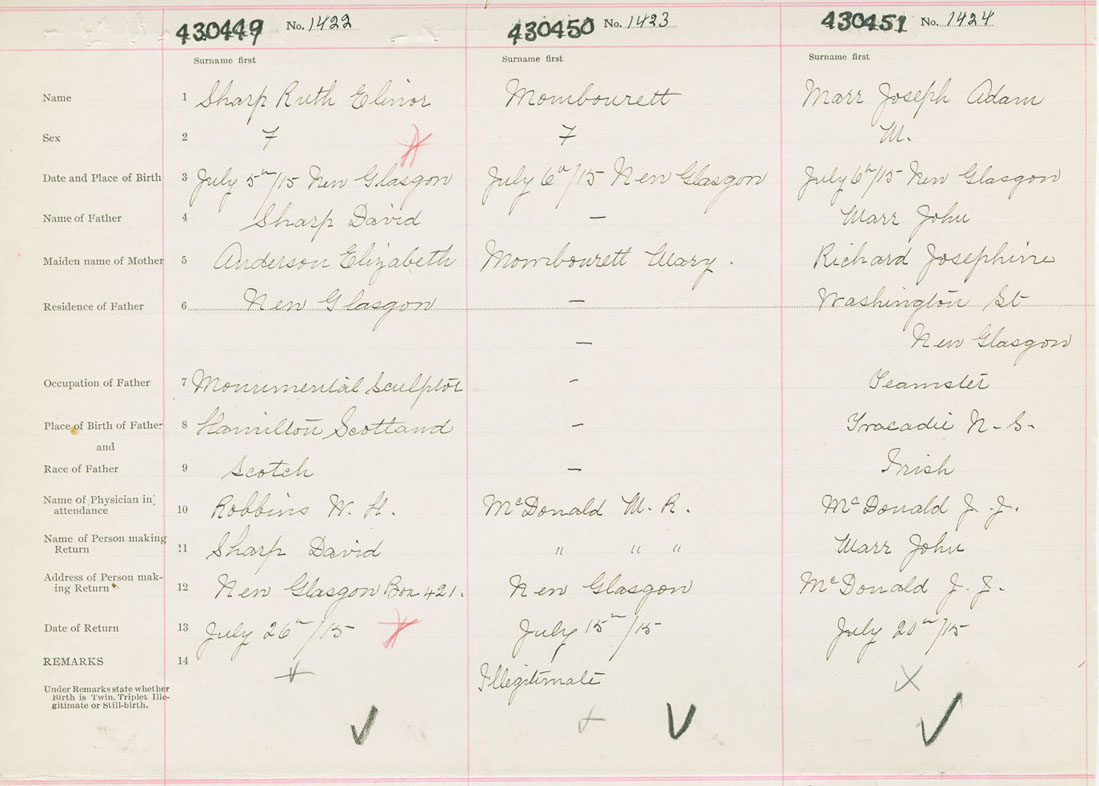 430449 No. 1422 430450 No. 1423 430451 No. 1424
Surname first Surname first Surname first
Name 1 Sharp Ruth Elinor Mombourett Marr Joseph Adam
Sex 2 F F M.
Date and Place of Birth 3 July 5th/15 New Glasgow July 6th/15 New Glasgow July 6th/15 New Glasgow
Name of Father 4 Sharp David — Marr John
Maiden name of Mother 5 Anderson Elizabeth Mombourett Mary. Richard Josephine
Residence of Father 6 New Glasgow — Washington St
— New Glasgow
Occupation of Father 7 Monumental Sculptor – Teamster
Place of Birth of Father 8 Hamilton Scotland – Tracadie N.S.
and
Race of Father 9 Scotch — Irish
Name of Physician in attendance 10 Robbins W. H. McDonald M. R. McDonald J. J.
Name of Person making Return 11 Sharp David " " " Marr John
Address of Person making Return 12 New Glasgow Box 421. New Glasgow McDonald J. J.
Date of Return 13 July 26th/15 July 15th/15 July 20th/15
REMARKS 14
Under Remarks state whether Birth is Twin, Triplet Illegitimate or Still-birth. Illegitimate